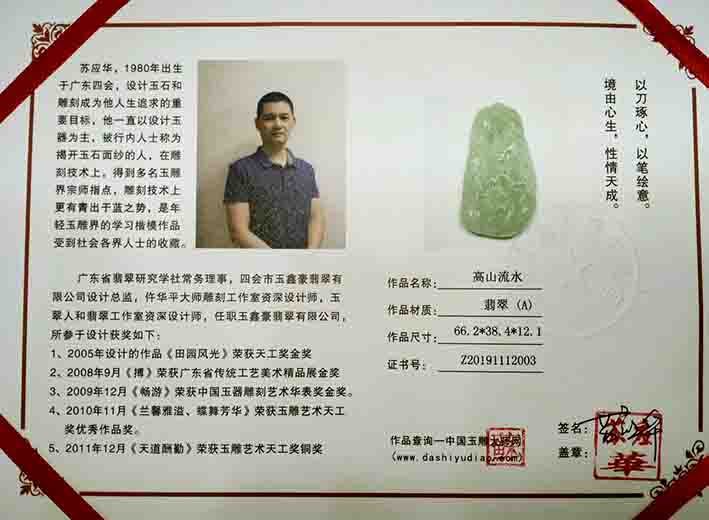 苏应华，1980年出生
于广东四会，设计玉石和
雕刻成为他人生追求的重
要目标，他一直以设计玉
器为主，被行内人士称为
揭开玉石面纱的人，在雕
刻技术上。得到多名玉雕
界宗师指点，雕刻技术上
更有青出干蓝之势，是年
轻玉雕界的学习楷模作品
受到社会各界人士的收藏。
以刀琢心，以笔绘意。
境由心生，性情天成。
广东省翡翠研究学社常务理事，四会市玉鑫豪翡翠有
限公司设计总监，仵华平大师雕刻工作室资深设计师，玉
翠人和翡翠工作室资深设计师，任职玉鑫豪翡翠有限公司，
所参于设计获奖如下：
1、2005年设计的作品《田园风光》荣获天工奖金奖
2、2008年9月《搏》荣获广东省传统工艺美术精品展金奖
3、2009年12月《畅游》荣获中国玉器雕刻艺术华表奖金奖。
4、2010年11月《兰馨雅溢、蝶舞芳华》荣获玉雕艺术天工
奖优秀作品奖。
5、2011年12月《天道酬勤》荣获玉雕艺术天工奖铜奖
作品名称：高山流水
作品材质：翡翠（A）
作品尺寸：66.2*38.4*12.1
证书号：Z20191112003
作品查询—中国玉雕大师网
(www.dashiyudiao.com)
签名：
盖章：
華